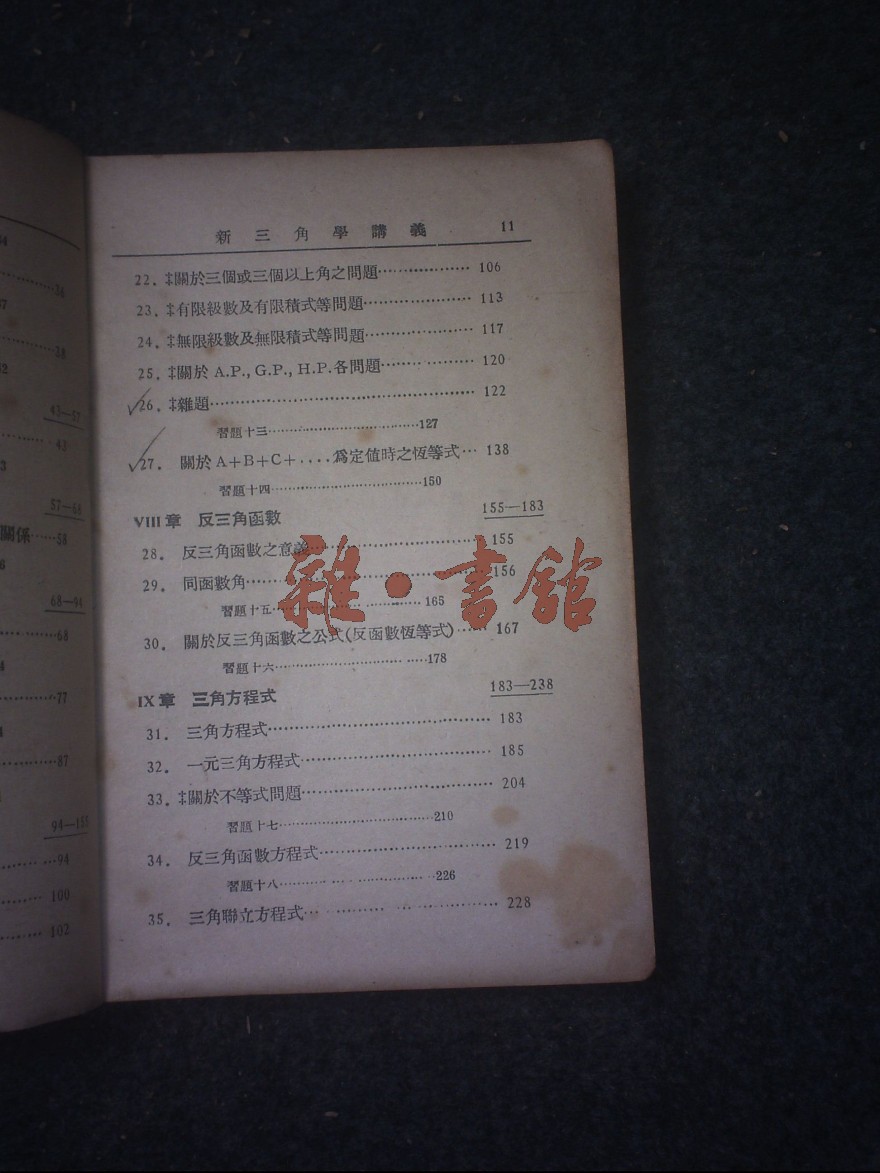 34
36
37
38
42
43—57
43
3
57—68
關係……58
6
68—94
68
4
77
4
87
94—155
94
100
102
新三角學講義 11
22. ‡關於三個或三個以上角之問題………………106
23. ‡有限級數及有限積式等問題…………………113
24. ‡無限級數及無限積式等問題…………………117
25. ‡關於 A.P., G.P., H.P. 各問題………………120
26. ‡雜題……………………………………………122
習題十三………………………………127
27. 關於 A+B+C+....爲定值時之恆等式…138
習題十四………………………………150
VIII 章 反三角函數 155—183
28. 反三角函數之意義………………………………155
29. 同函數角…………………………………………156
習題十五………………………………165
30. 關於反三角函數之公式(反函數恆等式)……167
習題十六………………………………178
IX 章 三角方程式 183—238
31. 三角方程式………………………………………183
32. 一元三角方程式…………………………………185
33. ‡關於不等式問題…………………………………204
習題十七………………………………210
34. 反三角函數方程式………………………………219
習題十八………………………………226
35. 三角聯立方程式…………………………………228
雜·書館